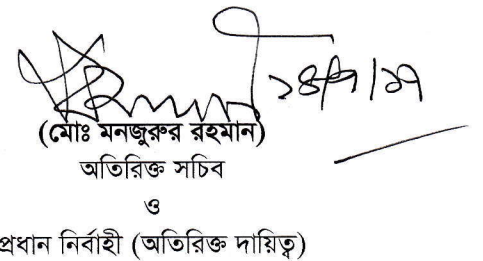 ১৪/৭/১৭
(মোঃ মনজুরুর রহমান)
অতিরিক্ত সচিব
ও
প্রধান নির্বাহী (অতিরিক্ত দায়িত্ব)